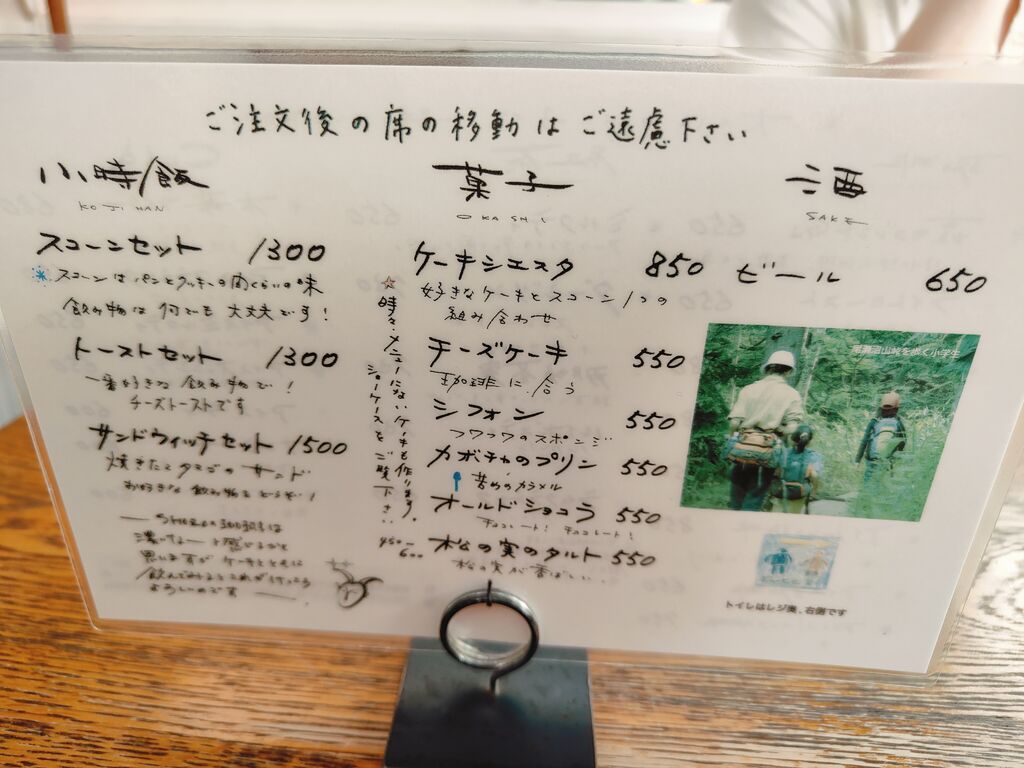 ご注文後の席の移動はご遠慮下さい
小時飯
KOJIHAN
スコーンセット 1300
スコーンはパンとクッキーの間くらいの味
飲み物は何でも大丈夫です!
トーストセット 1300
一番好きな飲み物で!
チーズトーストです
サンドウィッチセット 1500
焼きたてタマゴのサンド
お好きな飲み物をどうぞ!
思いますがケーキとともに
よろしいのです
菓子
OKASHI
☆時々、メニューにないケーキも作ります。
ショーケースをご覧下さい
ケーキシエスタ 850
好きなケーキとスコーン1つの
組み合わせ
チーズケーキ 550
珈琲に合う
シフォン 550
フワフワのスポンジ
カボチャのプリン 550
苦めのカラメル
オールドショコラ 550
チョコレート! チョコレート!
450〜600
松の実のタルト 550
松の実が香ばしい
酒
SAKE
ビール 650
山峠を歩く小学生
トイレはレジ奥、右側です